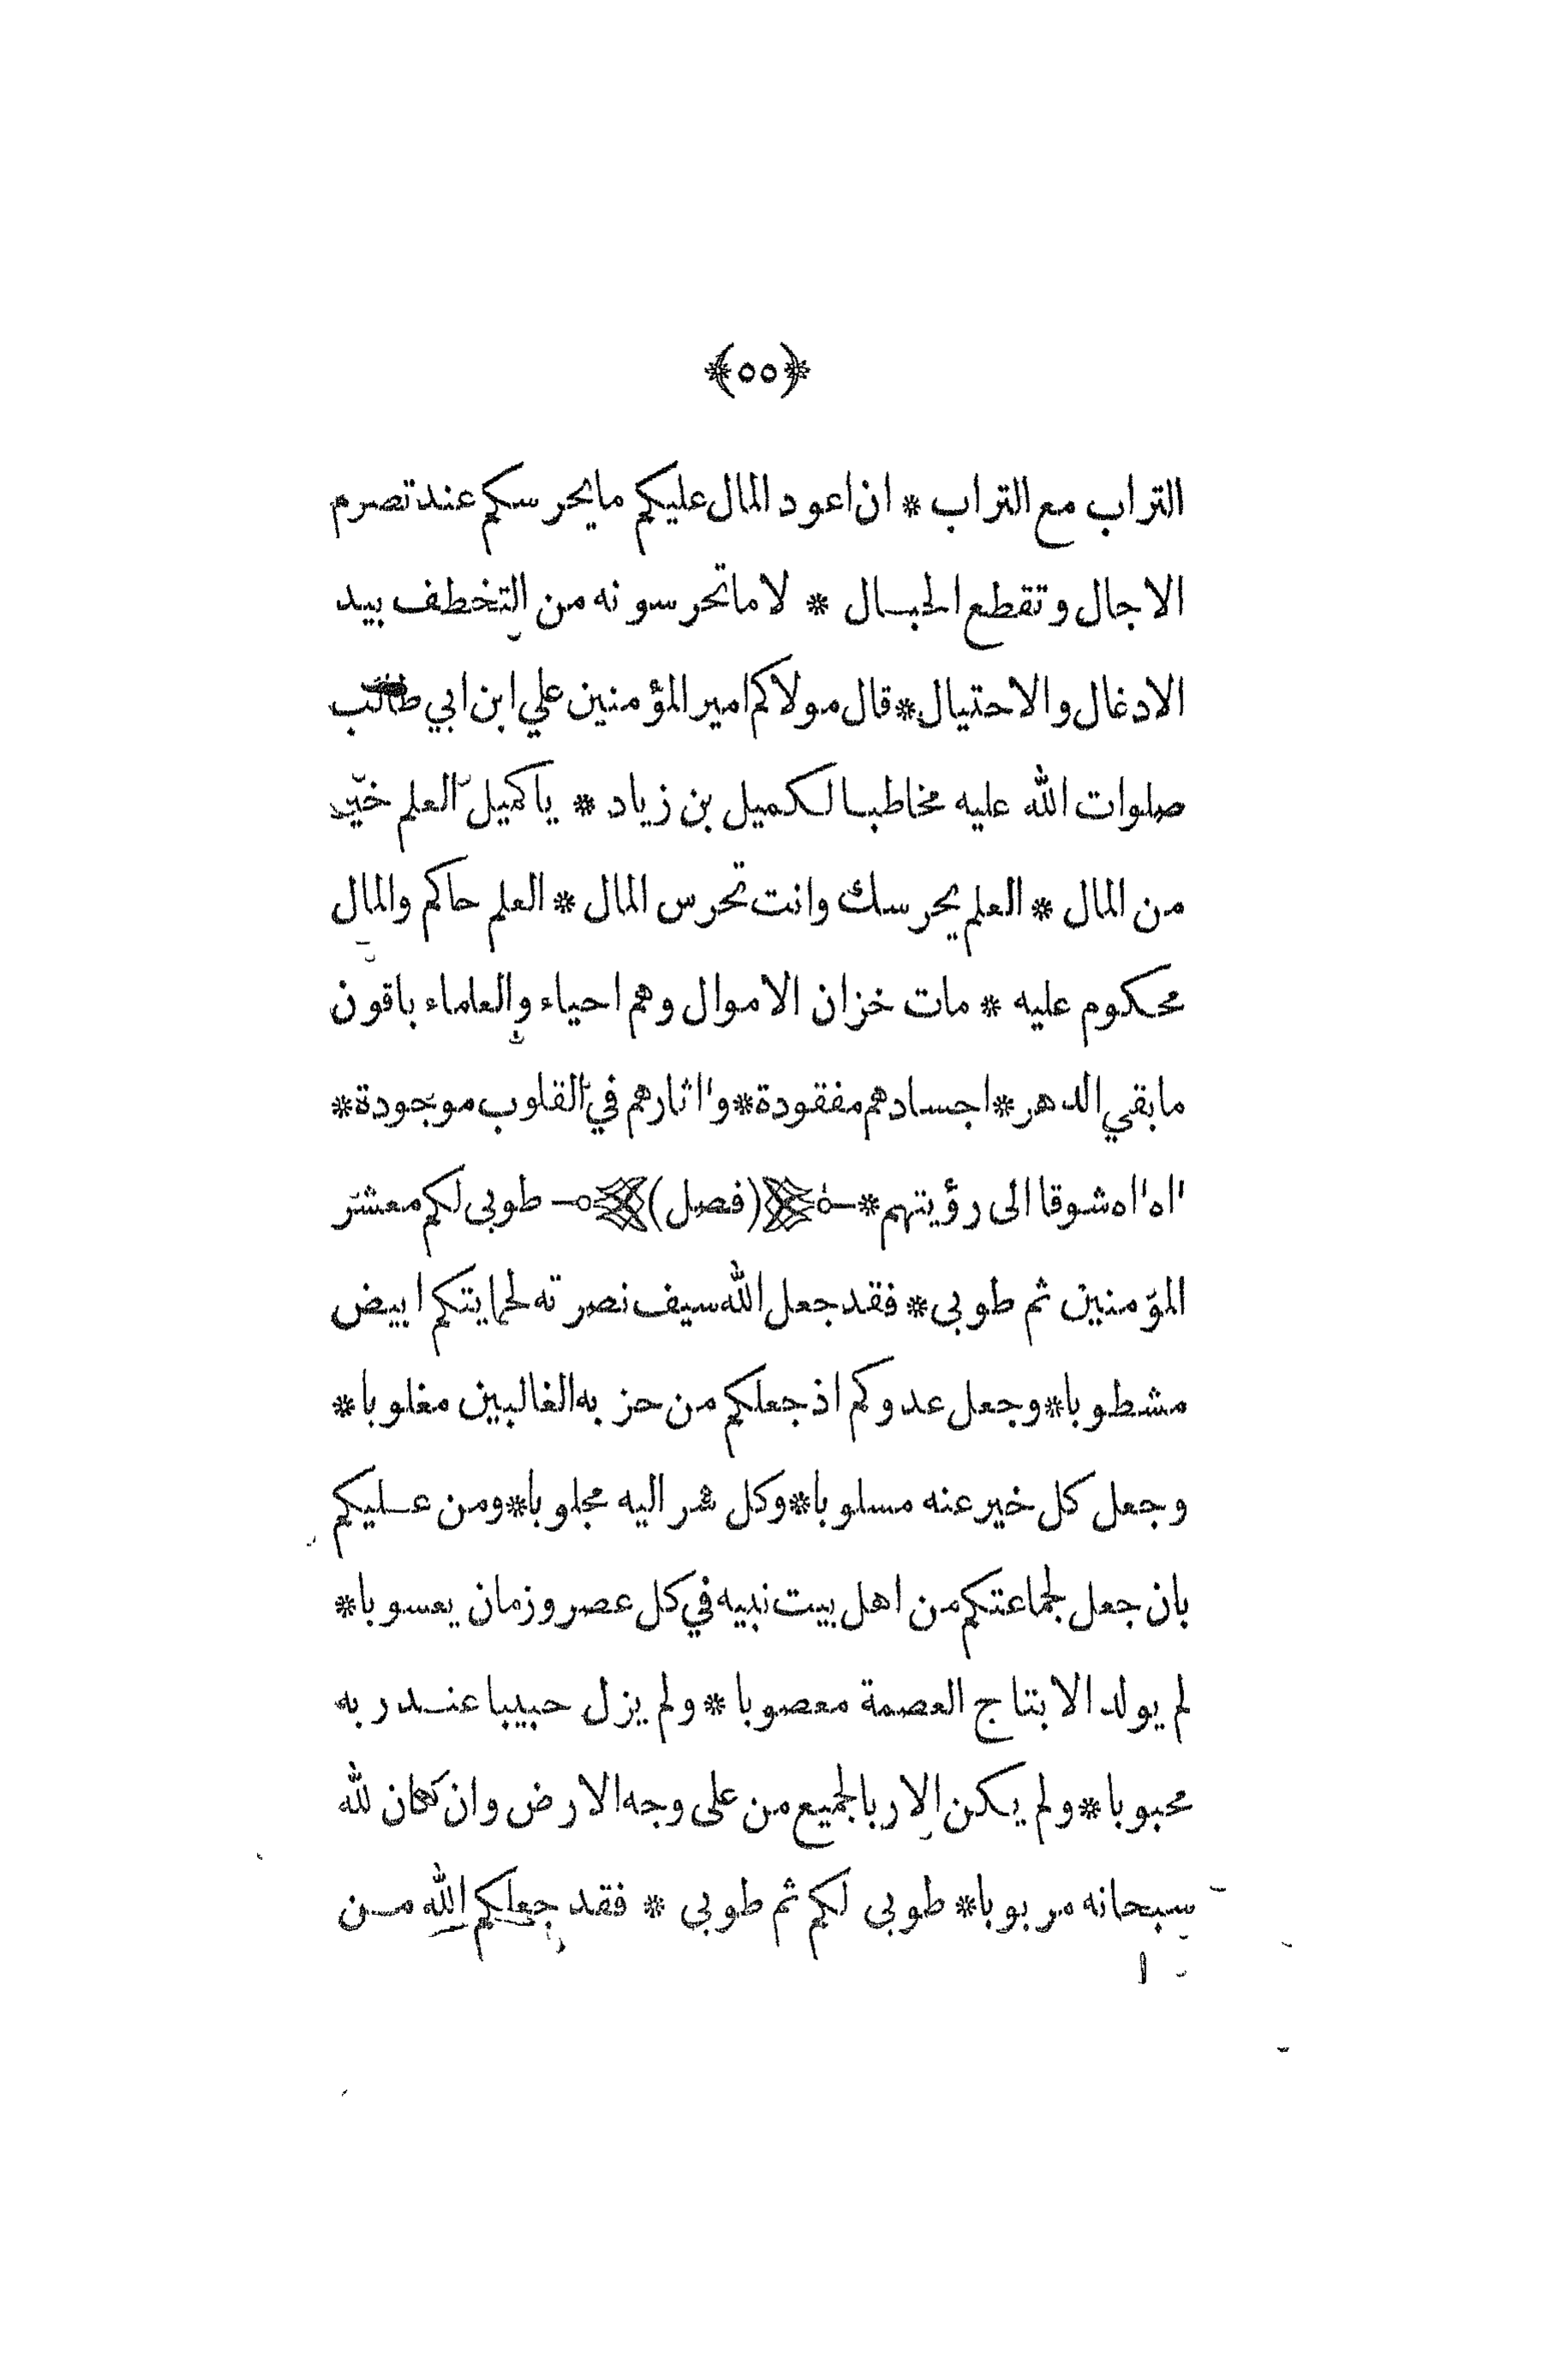 ﴿٥٥﴾
التراب مع التراب * ان اعود المال عليكم مايحرسكم عند تصرم
الاجال وتقطع الحبال * لا ماتحرسونه من التخطف بيد
الادغال والاحتيال * قال مولاكم امير المؤمنين علي ابن ابي طالب
صلوات الله عليه مخاطبا لكميل بن زياد * ياكميل العلم خير
من المال * العلم يحرسك وانت تحرس المال * العلم حاكم والمال
محكوم عليه * مات خزان الاموال وهم احياء والعلماء باقون
مابقي الدهر * اجسادهم مفقودة * وآثارهم في القلوب موجودة *
آه آه شوقا الى رؤيتهم * (فصل) طوبى لكم معشر
المؤمنين ثم طوبى * فقد جعل الله سيف نصرته لحمايتكم ابيض
مشطوبا * وجعل عدوكم اذ جعلكم من حزبه الغالبين مغلوبا *
وجعل كل خير عنه مسلوبا * وكل شر اليه مجلوبا * ومن عليكم
بان جعل لجماعتكم من اهل بيت نبيه في كل عصر وزمان يعسوبا *
لم يولد الا بتاج العصمة معصوبا * ولم يزل حبيبا عند ربه
محبوبا * ولم يكن الا ربا لجميع من على وجه الارض وان كان لله
سبحانه مربوبا * طوبى لكم ثم طوبى * فقد جعلكم الله من